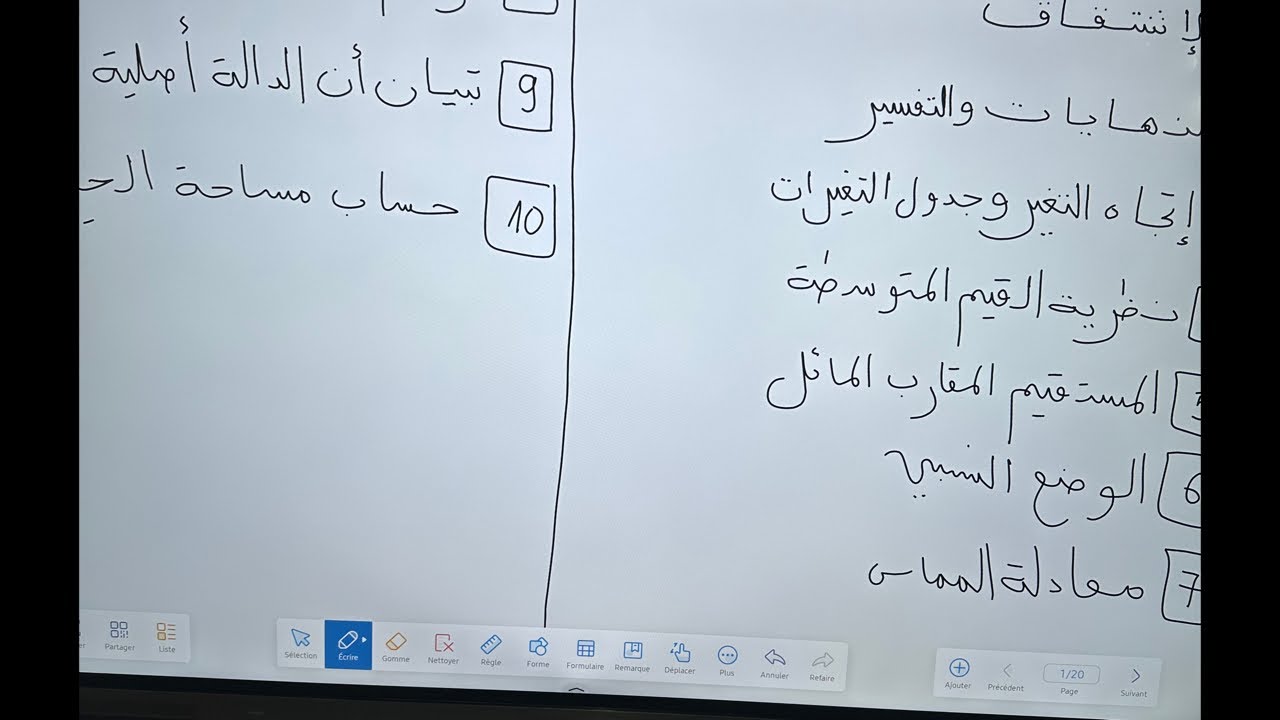 الإشتقاق
النهايات والتفسير
إتجاه التغير وجدول التغيرات
نظرية القيم المتوسطة
5 المستقيم المقارب المائل
6 الوضع النسبي
7 معادلة المماس
9 تبيان أن الدالة أصلية
10 حساب مساحة
Partager
Liste
Sélection
Écrire
Gomme
Nettoyer
Règle
Forme
Formulaire
Remarque
Déplacer
Plus
Annuler
Refaire
Ajouter
Précédent
1/20
Page
Suivant